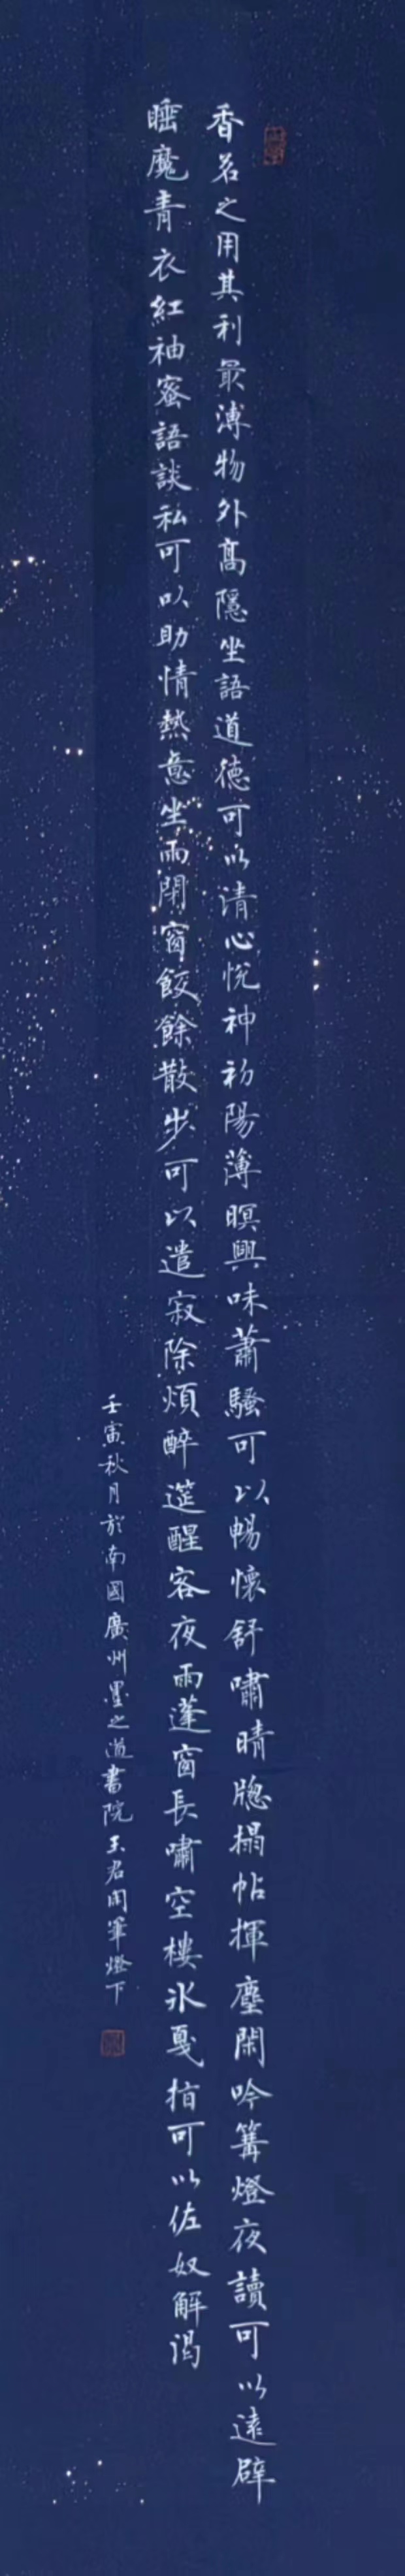 香茗之用其利最溥物外高隱坐語道德可以清心悅神初陽薄暝興味蕭騷可以暢懷舒嘯晴牕搨帖揮塵閑吟篝燈夜讀可以遠辟
睡魔青衣紅袖蜜語談私可以助情熱意坐雨閉窗飯餘散步可以遣寂除煩醉筵醒客夜雨蓬窗長嘯空樓冰戛指可以佐奴解渴
壬寅秋月於南國廣州墨之道書院王君閑筆燈下